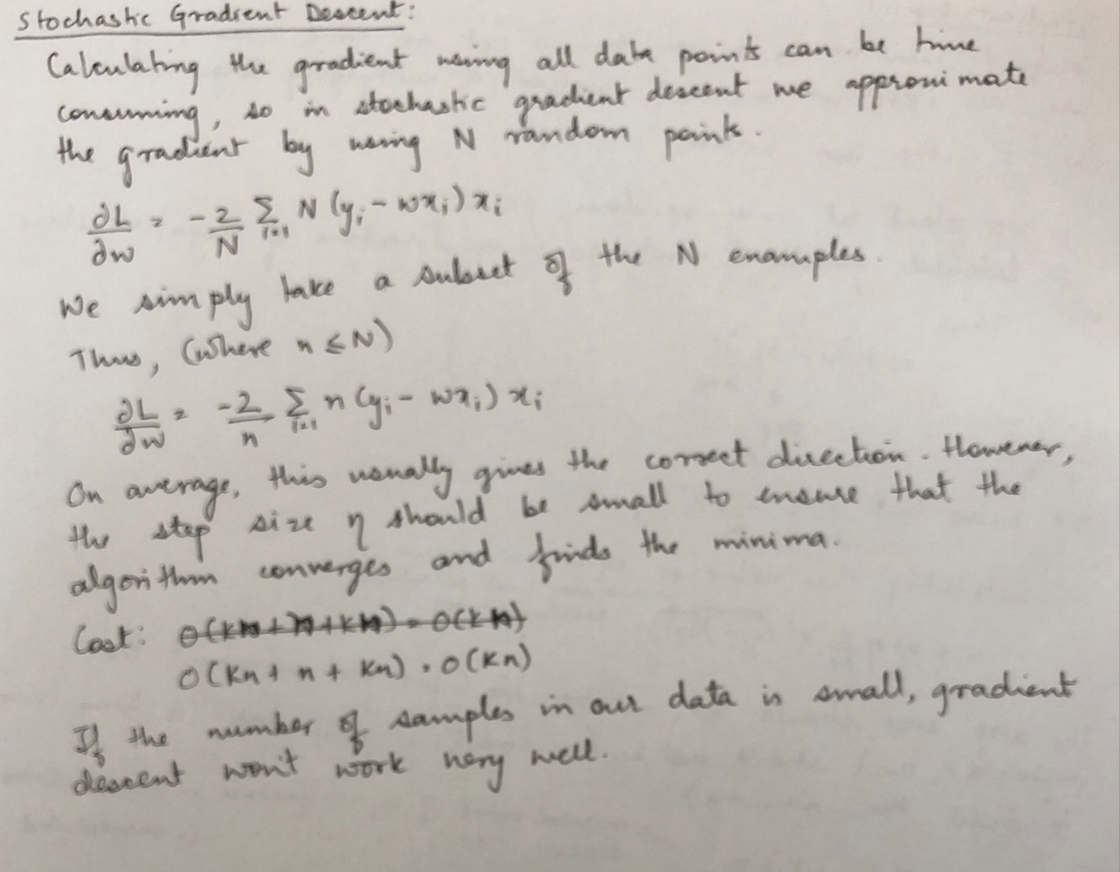 Stochastic Gradient Descent:
Calculating the gradient using all data points can be time
consuming, so in stochastic gradient descent we approximate
the gradient by using N random points.
∂L/∂w = -2/N Σ_{i=1} N (y_i - wx_i) x_i
We simply take a subset of the N examples.
Thus, (where n ≤ N)
∂L/∂w = -2/n Σ_{i=1} n (y_i - wx_i) x_i
On average, this usually gives the correct direction. However,
the step size η should be small to ensure that the
algorithm converges and finds the minima.
Cost:
O(Kn + n + Kn) = O(Kn)
If the number of samples in our data is small, gradient
descent won't work very well.